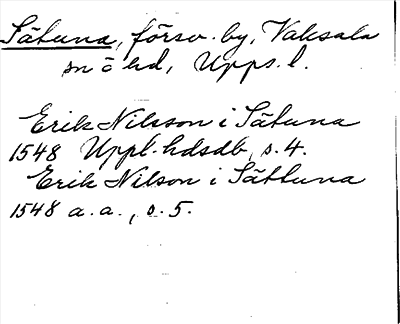 Sätuna, försv. by, Vaksala
sn ö hd, Upps. l.
Erik Nilsson i Sätuna
1548 Uppl. hdsdb, s. 4.
Erik Nilson i Sättuna
1548 a. a., s. 5.